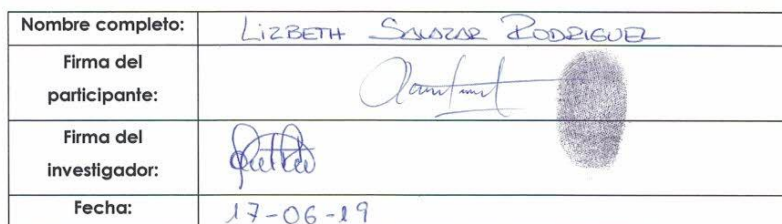 Nombre completo: LIZBETH SALAZAR RODRIGUEZ
Firma del
participante:
Firma del
investigador:
Fecha: 17-06-19